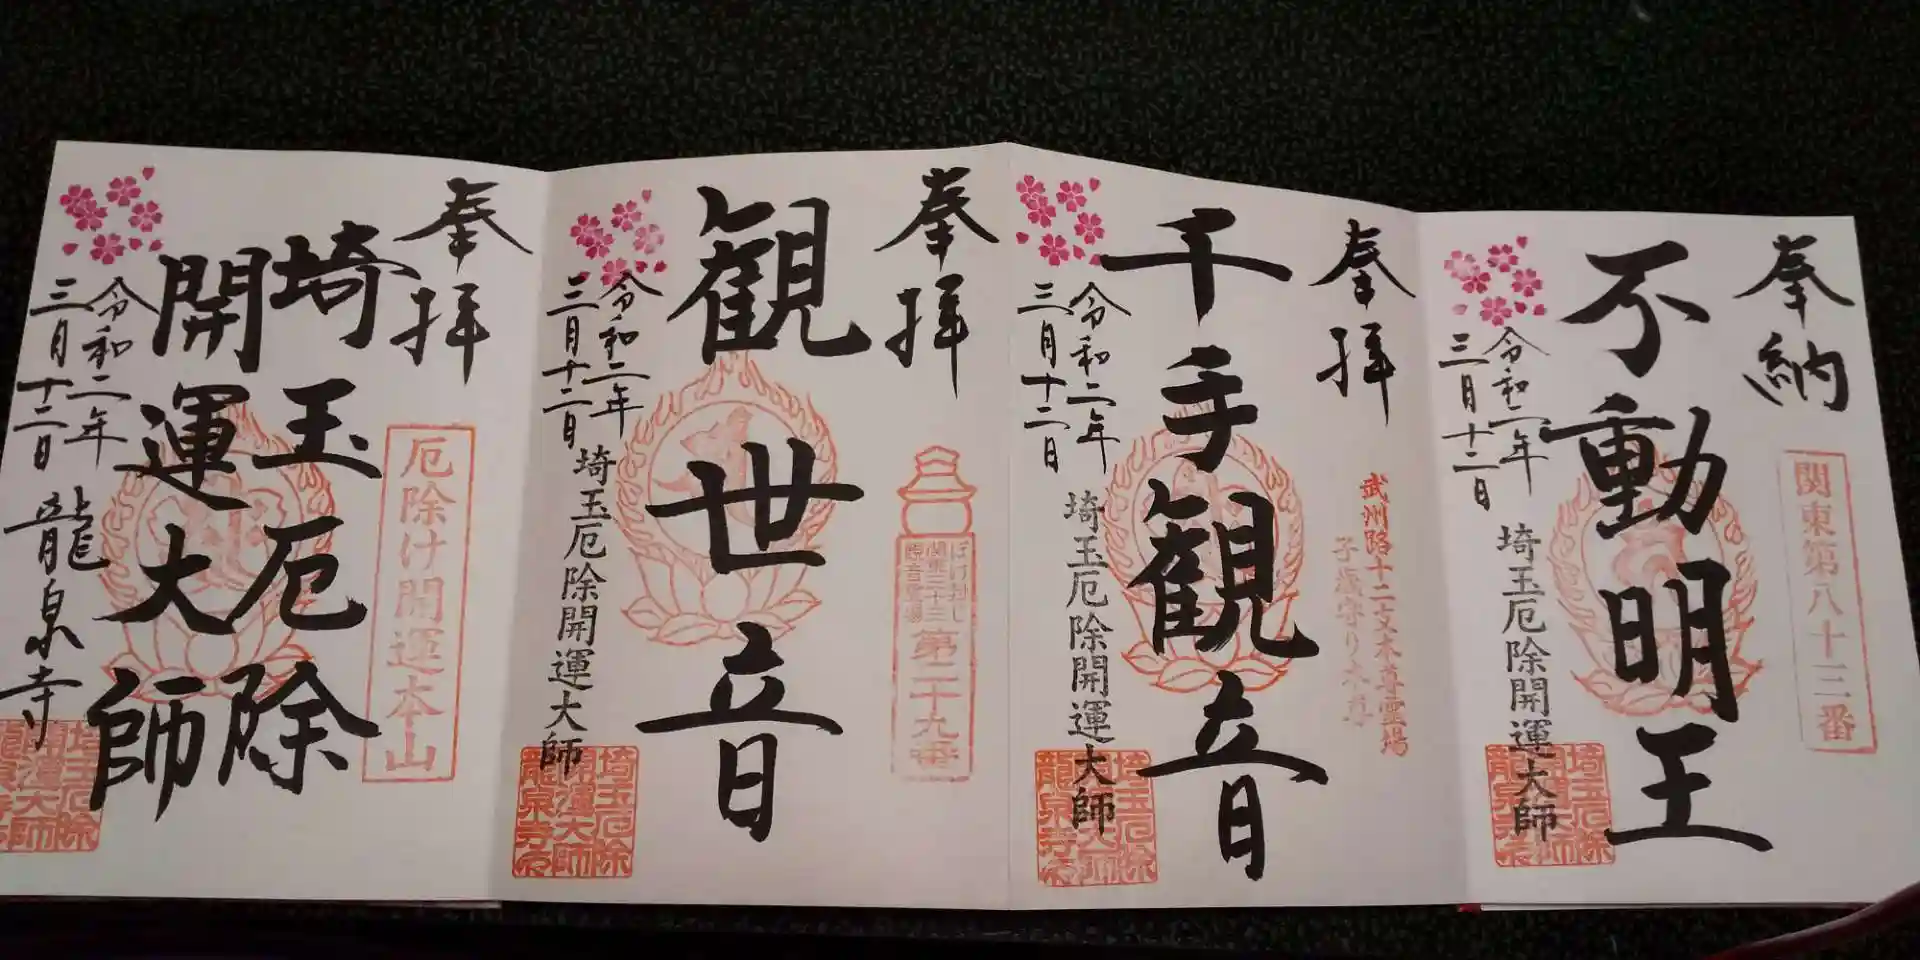 奉納
関東第八十三番
不動明王
令和二年
三月十二日
埼玉厄除開運大師
埼玉厄除
開運大師
龍泉寺印
奉拝
武州路十二支本尊霊場
子歳守り本尊
千手観音
令和二年
三月十二日
埼玉厄除開運大師
埼玉厄除
開運大師
龍泉寺印
奉拝
ぼけ封じ
関東三十三
観音霊場
第二十九番
観世音
令和二年
三月十二日
埼玉厄除開運大師
埼玉厄除
開運大師
龍泉寺印
奉拝
厄除け開運本山
埼玉厄除
開運大師
令和二年
三月十二日
龍泉寺
埼玉厄除
開運大師